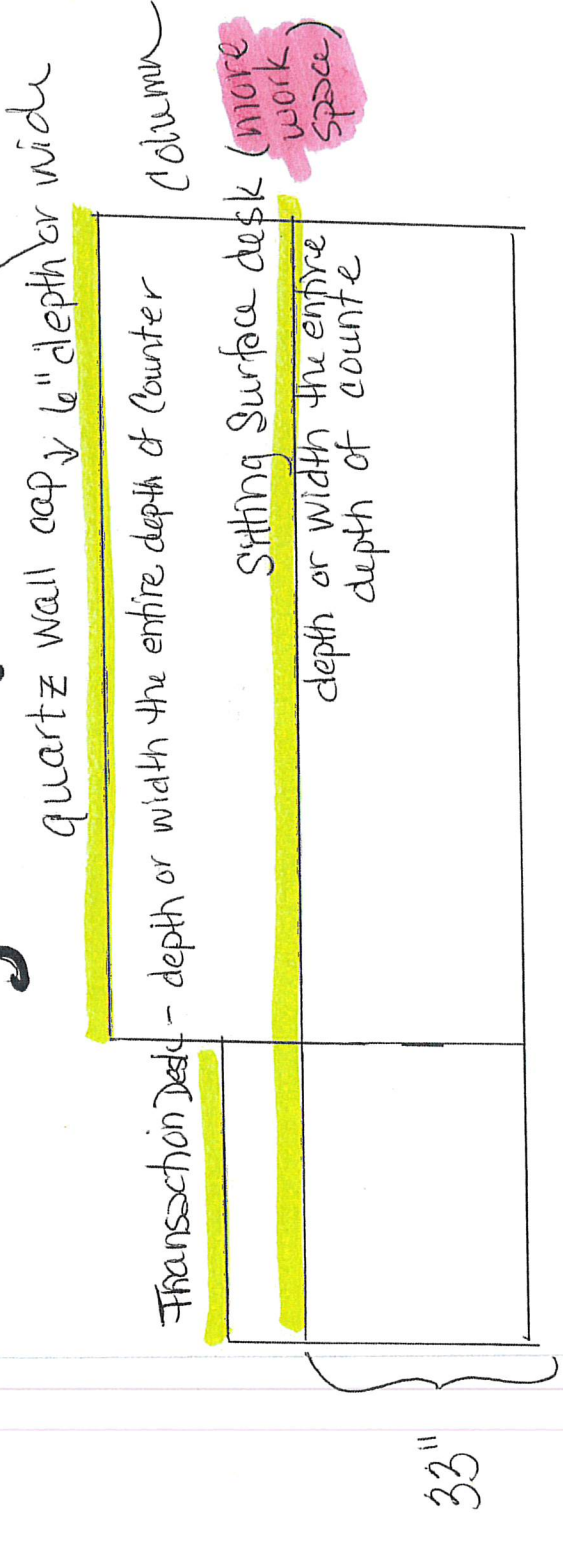 quartz wall cap 6" depth or wide
Column
Transaction Desk - depth or width the entire depth of Counter
Sitting Surface desk (more
work
space)
depth or width the entire
depth of counte
33"